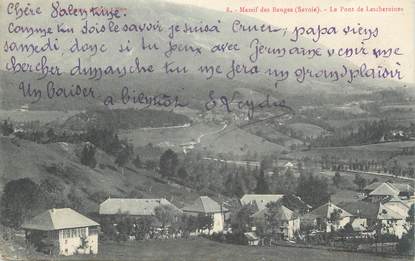 Chère Valentine.
8. - Massif des Bauges (Savoie). - Le Pont de Lescheraines
Comme tu dois le savoir je suis à Cruet, papa viens
samedi donc si tu peux avec Germaine venir me
chercher dimanche tu me fera un grand plaisir
Un baiser
à bientôt